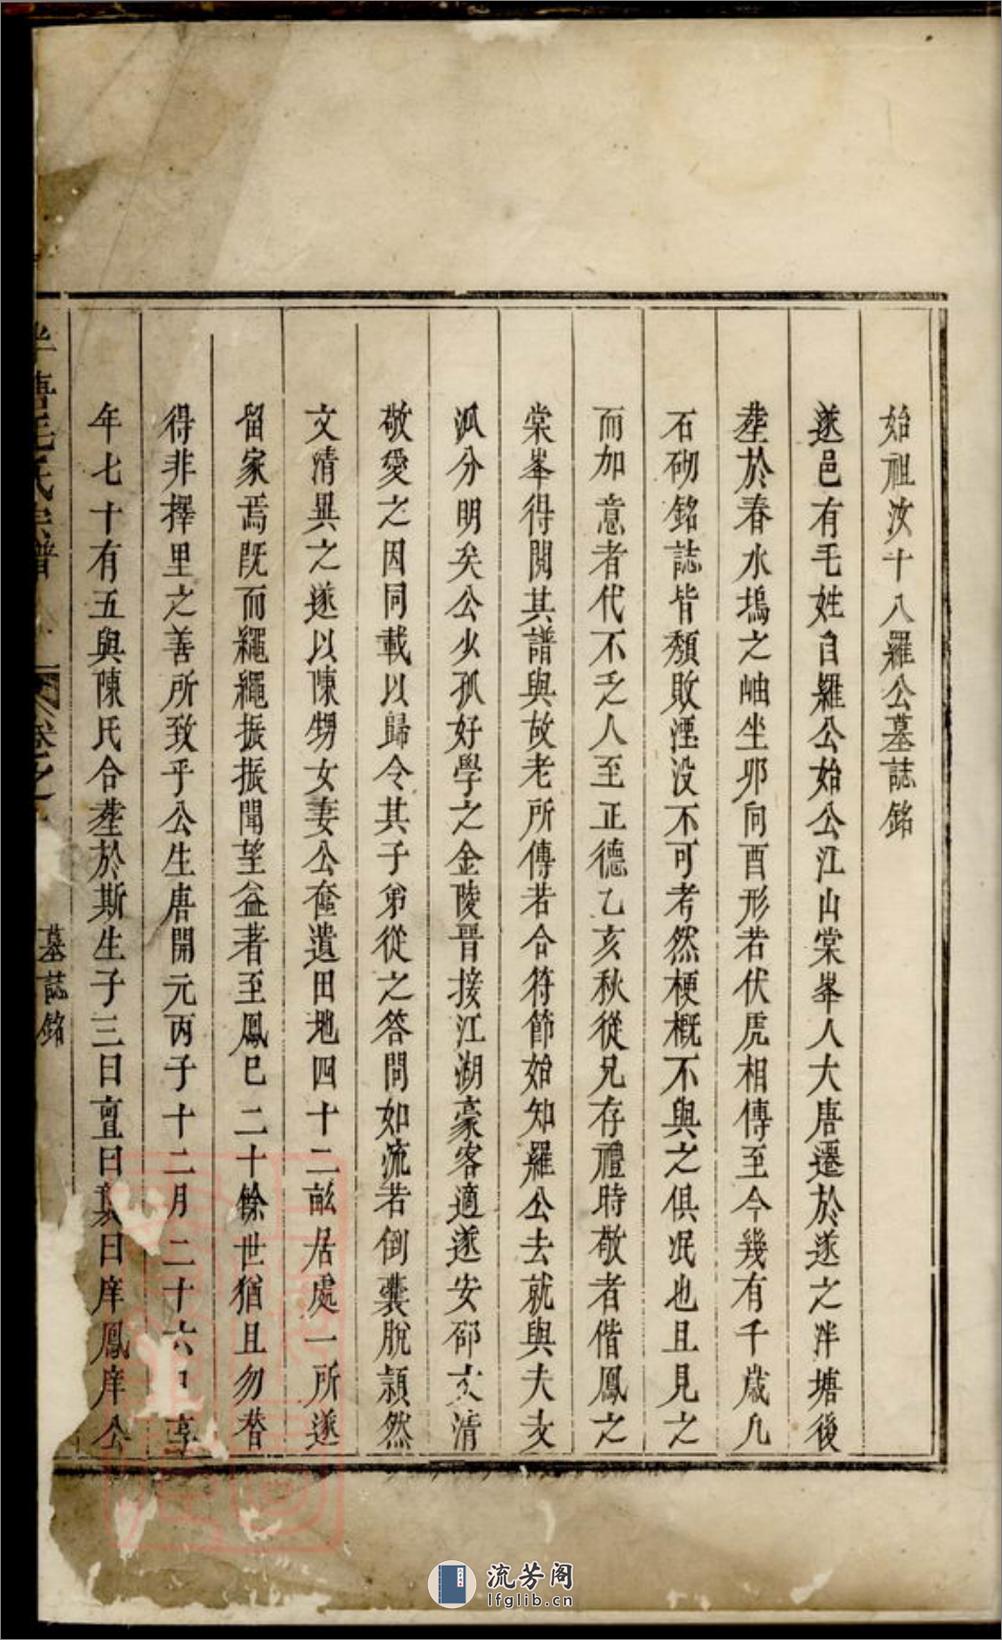 始祖汝十八羅公墓誌銘
遂邑有毛姓自羅公始公江山棠峯人大唐遷於遂之泮塘後
塟於春水塢之岫坐夘向酉形若伏虎相傳至今幾有千歲凢
石砌銘誌皆頽敗湮没不可考然梗概不與之俱泯也且見之
而加意者代不乏人至正德乙亥秋從兄存禮時敬者偕鳳之
棠峯得閱其譜與故老所傳若合符節始知羅公去就與夫支
派分明矣公少孤好學之金陵晋接江湖豪客適遂安邵文清
敬愛之因同載以歸令其子弟從之答問如流若倒囊脫頴然
文清異之遂以陳甥女妻公奩遺田地四十二畝居處一所遂
留家焉既而繩繩振振聞望益著至鳳巳二十餘世猶且勿替
得非擇里之善所致乎公生唐開元丙子十二月二十六日享
年七十有五與陳氏合塟於斯生子三曰亶曰 曰庠鳳庠公
毛氏宗譜 卷之
墓誌銘
流芳阁
lfglib.cn